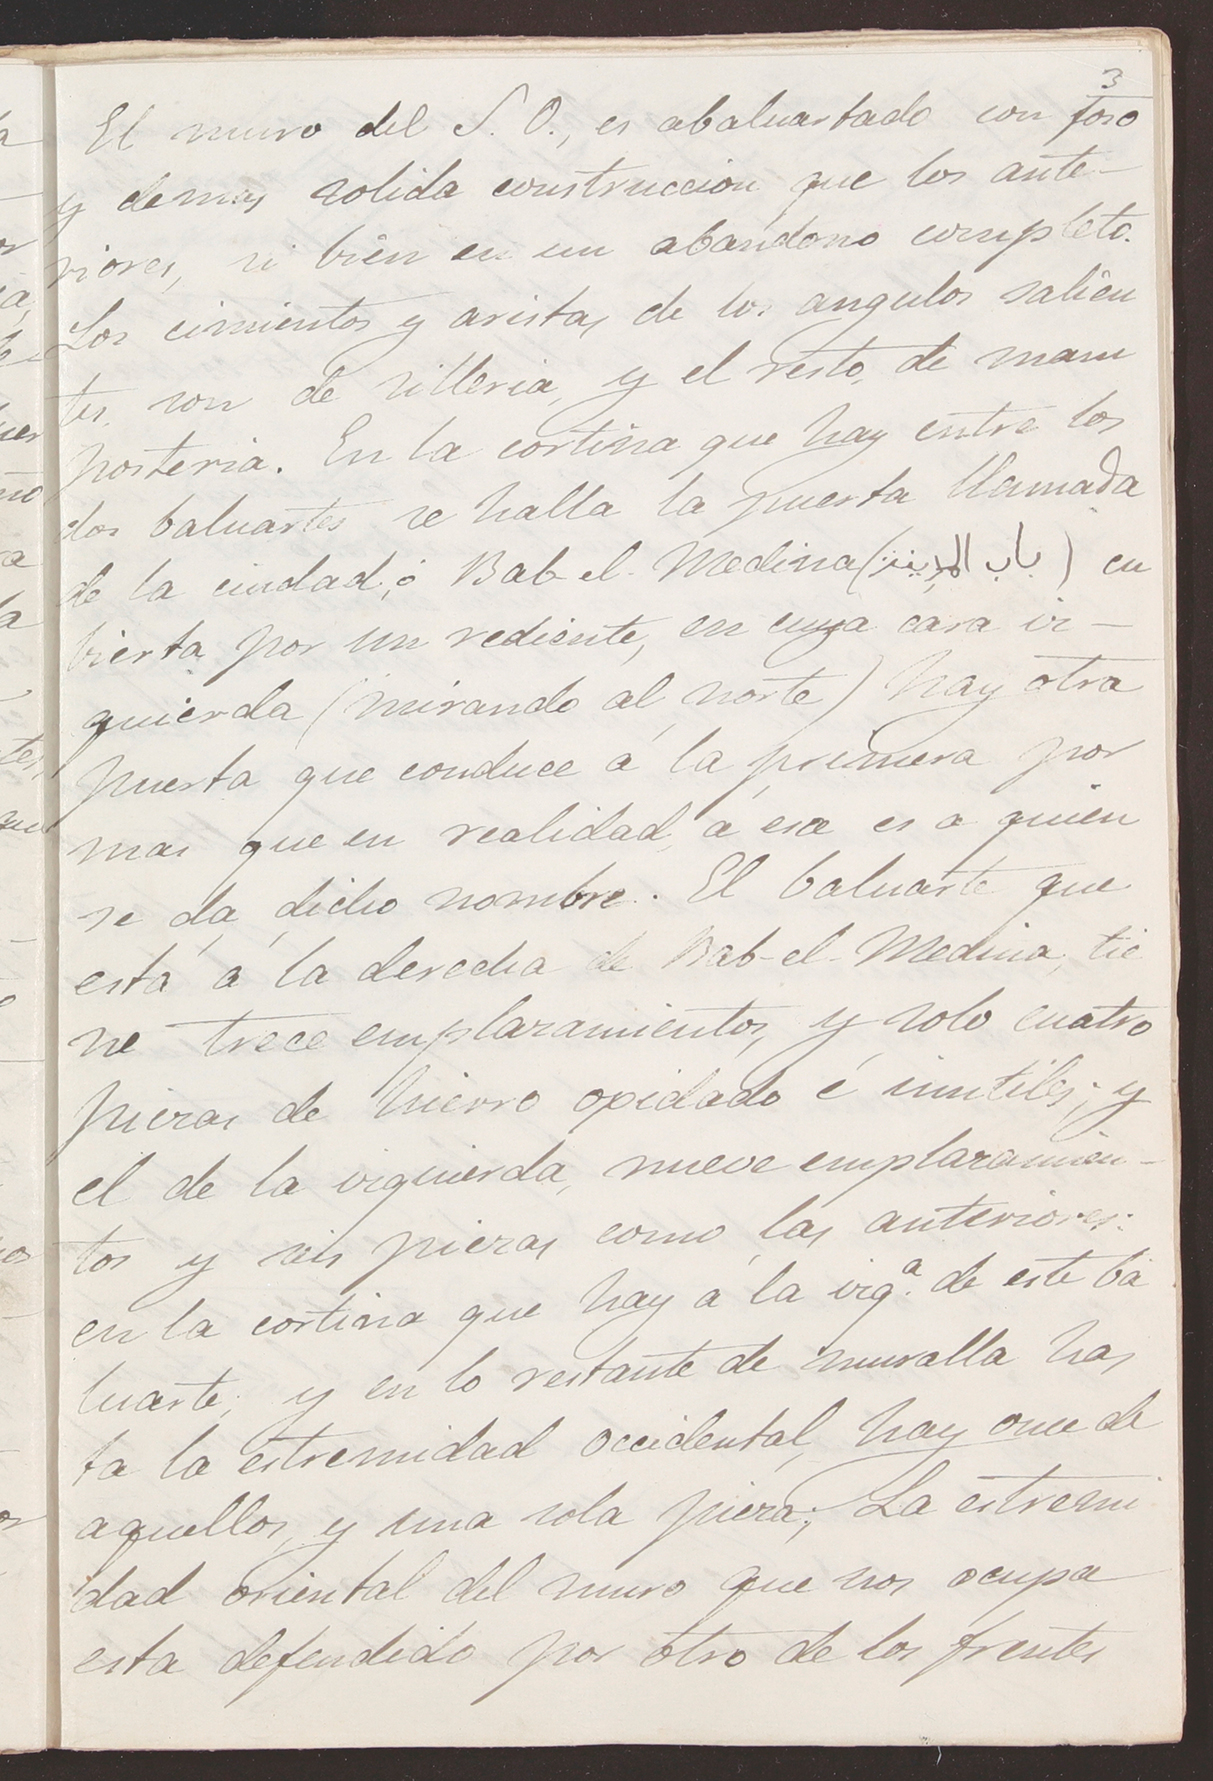 3
El muro del S. O., es abaluartado con foso
y demas solida construccion que los ante-
riores, si bien en un abandono completo.
Los cimientos y aristas de los angulos salien
tes, son de silleria, y el resto, de mam
posteria. En la cortina que hay entre los
dos baluartes se halla la puerta llamada
de la ciudad, ó Bab-el-Medina (باب المدينة) cu
bierta por un rediente, en cuya cara iz-
quierda (mirando al norte) hay otra
puerta que conduce á la primera por
mas que en realidad, á esa es a quien
se da, dicho nombre. El baluarte que
está á la derecha de Bab-el-Medina, tie
ne trece emplazamientos, y solo cuatro
piezas de hierro oxidado é inutiles; y
el de la izquierda, nueve emplazamien-
tos y seis piezas como las anteriores:
en la cortina que hay á la izqª. de este ba
luarte, y en lo restante de muralla has
ta la estremidad occidental, hay once de
aquellos, y una sola pieza; La estremi
dad oriental del muro que nos ocupa
esta defendido por otro de los frentes